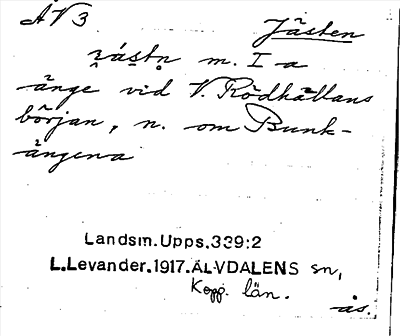 ÄV3
Jästen
m. I a
änge vid V. Rödhällans
början, n. om Bunk-
ängena
Landsm. Upps. 339:2
L. Levander. 1917. ÄLVDALENS sn,
Kopp. län.
ås.